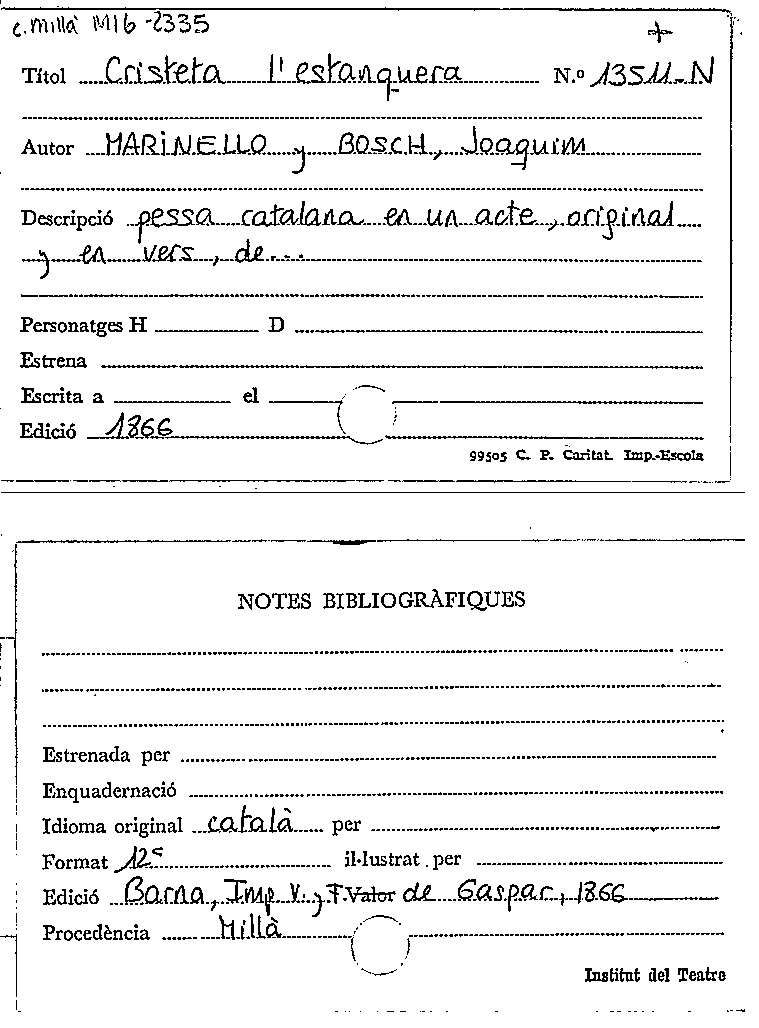 c. millà M16-2335
Títol Cristeta l'estanquera N.º 13511-N
Autor MARINELLO y BOSCH, Joaquim
Descripció pessa catalana en un acte, original
y en vers, de...
Personatges H D
Estrena
Escrita a el
Edició 1866
99505 C. P. Caritat. Imp.-Escola
NOTES BIBLIOGRÀFIQUES
Estrenada per
Enquadernació
Idioma original català per
Format 12º il·lustrat per
Edició Barna, Imp V. y F. Valor de Gaspar, 1866
Procedència Millà
Institut del Teatre